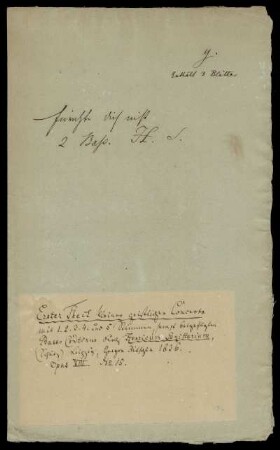 g.
Enthält 2 Blätter
Fürchte dich nicht
2 Bass. H. S.
Erster Theil kleiner geistlichen Concerte
mit 1. 2. 3. 4. und 5 Stimmen sampt beigefügtem
Basso Continuo durch Henricum Sagittarium,
Leipzig, Georg 1636.
Opus VIII. No. 15.